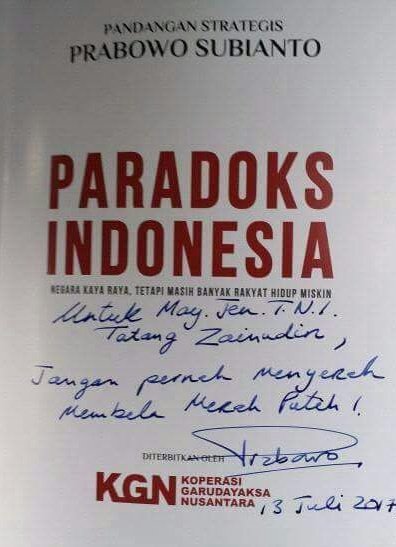 PANDANGAN STRATEGIS
PRABOWO SUBIANTO
PARADOKS
INDONESIA
NEGARA KAYA RAYA, TETAPI MASIH BANYAK RAKYAT HIDUP MISKIN
Untuk May. Jen. T.N.I.
Tatang Zainudin,
Jangan pernah menyerah
Membela Merah Putih!
Prabowo
DITERBITKAN OLEH
KGN KOPERASI
GARUDAYAKSA
NUSANTARA
13 Juli 2017